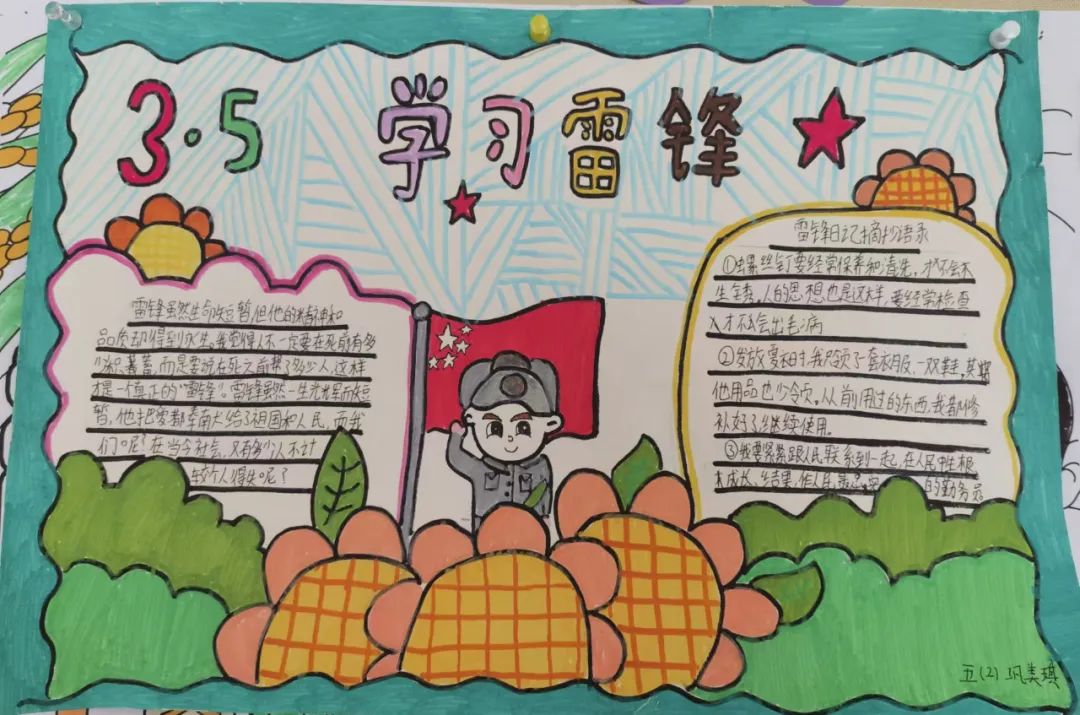 3·5 学习雷锋
雷锋虽然生命短暂,但他的精神和
品质却得到永生。我觉得人不一定要在死前有多
少积蓄,而是要说在死之前帮了多少人,这样
才是一个真正的“雷锋”。雷锋虽然一生光辉而短
暂,他却把爱都奉献给了祖国和人民,而我
们呢?在当今社会,又有多少人不计
较个人得失呢?
雷锋日记摘抄语录
①螺丝钉要经常保养和清洗,才不会
生锈。人的思想也是这样,要经常检查
才不会出毛病
②发放夏装时,我只领了一套衣服、一双鞋,其
他用品也少领。从前用过的东西,我都修
补好了继续使用。
③我要紧紧跟人民联系到一起,在人民中生根
成长、结果,作人民 的勤务员
五(2) 巩美琪